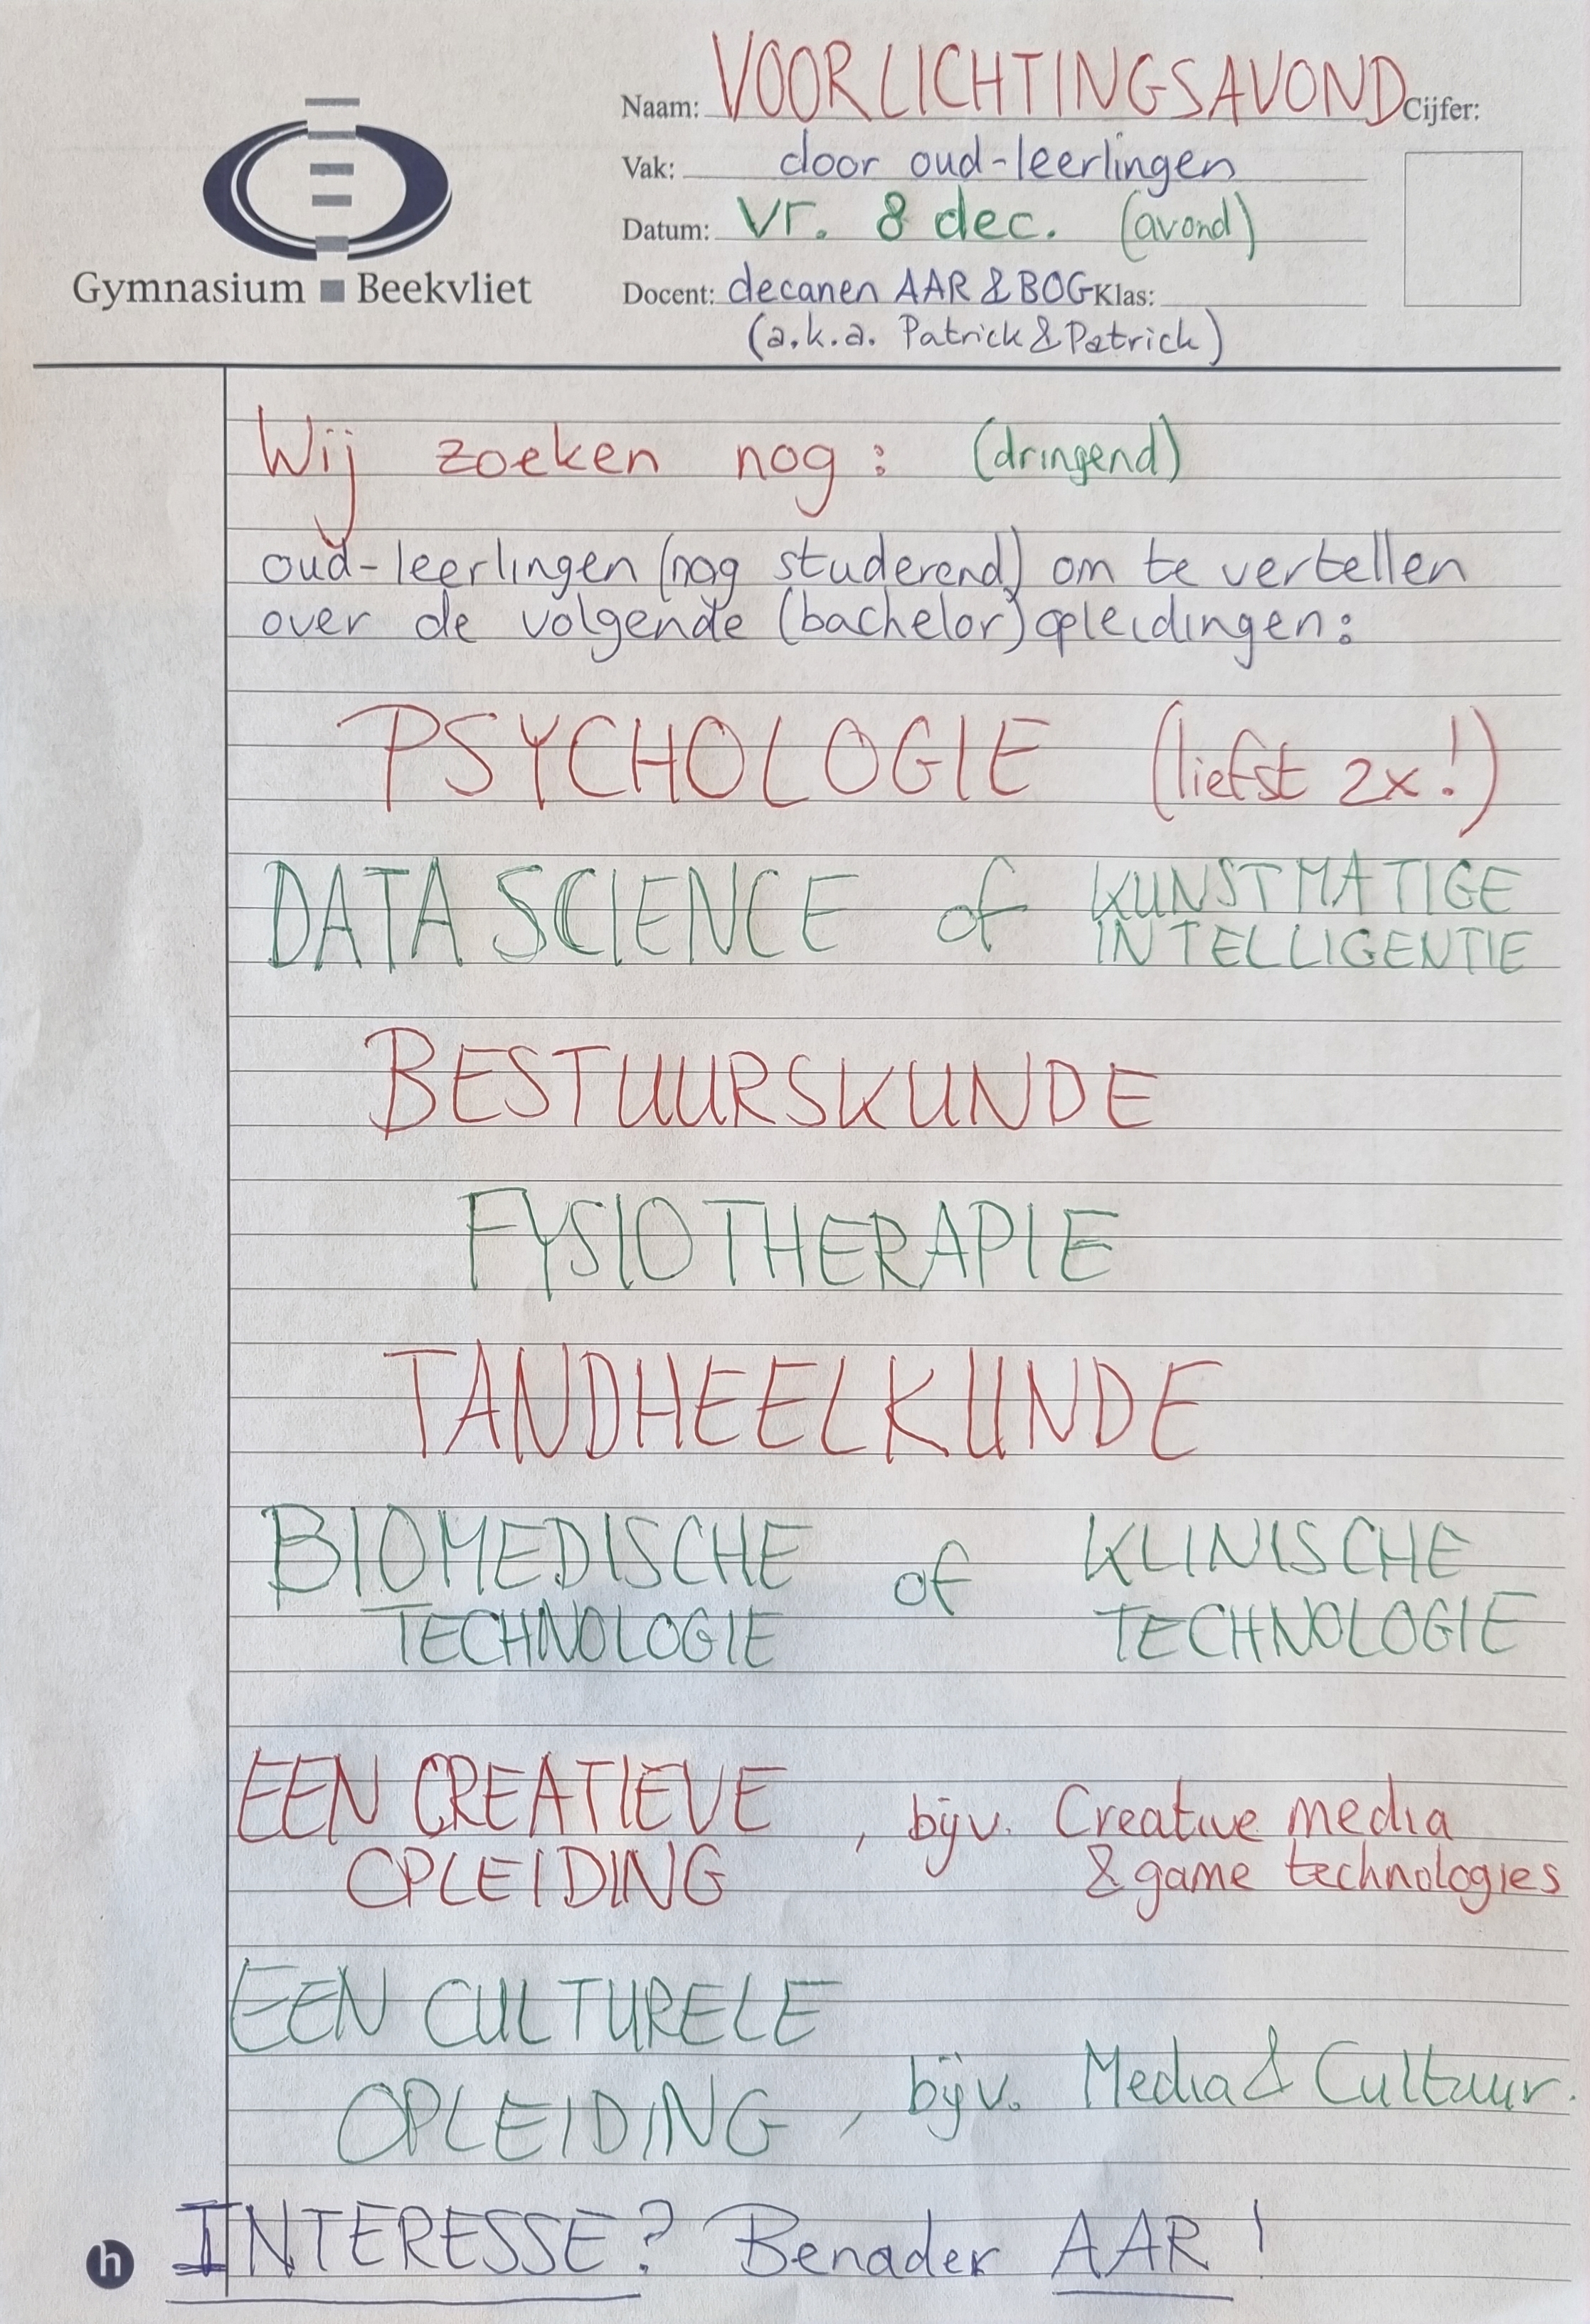 Naam: VOORLICHTINGSAVOND Cijfer:
Vak: door oud-leerlingen
Datum: vr. 8 dec. (avond)
Gymnasium Beekvliet
Docent: decanen AAR & BOG Klas:
(a.k.a. Patrick & Patrick)
Wij zoeken nog: (dringend)
oud-leerlingen (nog studerend) om te vertellen
over de volgende (bachelor)opleidingen:
PSYCHOLOGIE (liefst 2x!)
DATA SCIENCE of KUNSTMATIGE
INTELLIGENTIE
BESTUURSKUNDE
FYSIOTHERAPIE
TANDHEELKUNDE
BIOMEDISCHE of KLINISCHE
TECHNOLOGIE TECHNOLOGIE
EEN CREATIEVE , bijv. Creative media
OPLEIDING & game technologies
EEN CULTURELE
OPLEIDING , bijv. Media & Cultuur.
INTERESSE? Benader AAR!
h